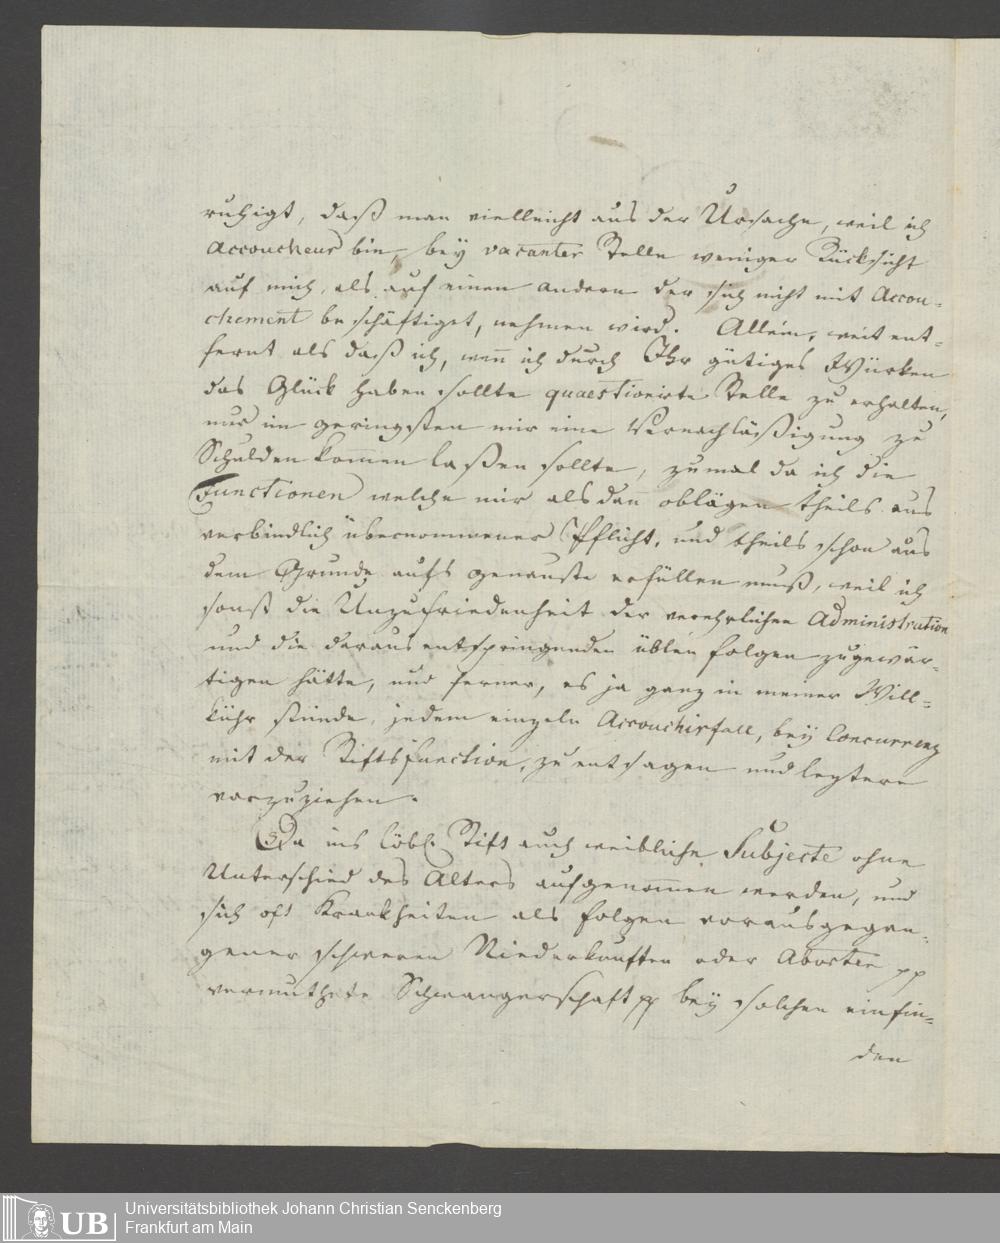 ruhigt, daß man vielleicht aus der Ursache, weil ich
Accoucheur bin, bey vacanter Stelle weniger Rücksicht
auf mich, als auf einen andern der sich nicht mit Accou-
chement beschäftiget, nehmen wird. Allein, weit ent-
fernt als daß ich, wenn ich durch Ihr gütiges Würken
das Glück haben sollte quaestionirte Stelle zu erhalten,
nur im geringsten mir eine Vernachläßigung zu
Schulden kommen laßen sollte, zumal da ich die
Functionen welche mir alsdann oblägen theils aus
verbindlich übernommener Pflicht, und theils schon aus
dem Grunde aufs genauste erfüllen muß, weil ich
sonst die Unzufriedenheit der verehrlichen Administration
und die daraus entspringenden üblen folgen zugewär-
tigen hätte, und ferner, es ja ganz in meiner Will-
kühr stünde, jedem einzeln Accouchirfall, bey Concurrenz
mit der Stiftsfunction, zu entsagen und leztere
vorzuziehen.
Da ins löbl. Stift auch weibliche Subjecte ohne
Unterschied des Alters aufgenommen werden, und
sich oft Krankheiten als folgen vorausgegan-
gener schweren Niederkunften oder Aborten pp
vermuthete Schwangerschaft pp bey solchen einfin-
den
Universitätsbibliothek Johann Christian Senckenberg
Frankfurt am Main
UB